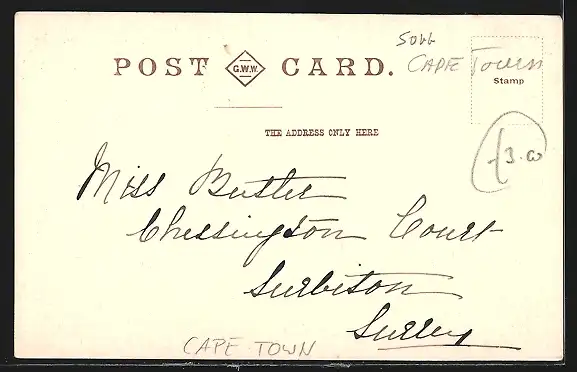 5066
CAPE TOWN
POST G.W.W. CARD.
Stamp
THE ADDRESS ONLY HERE
£3.00
Miss Butler
Chessington Court
Surbiton
Surrey
CAPE TOWN